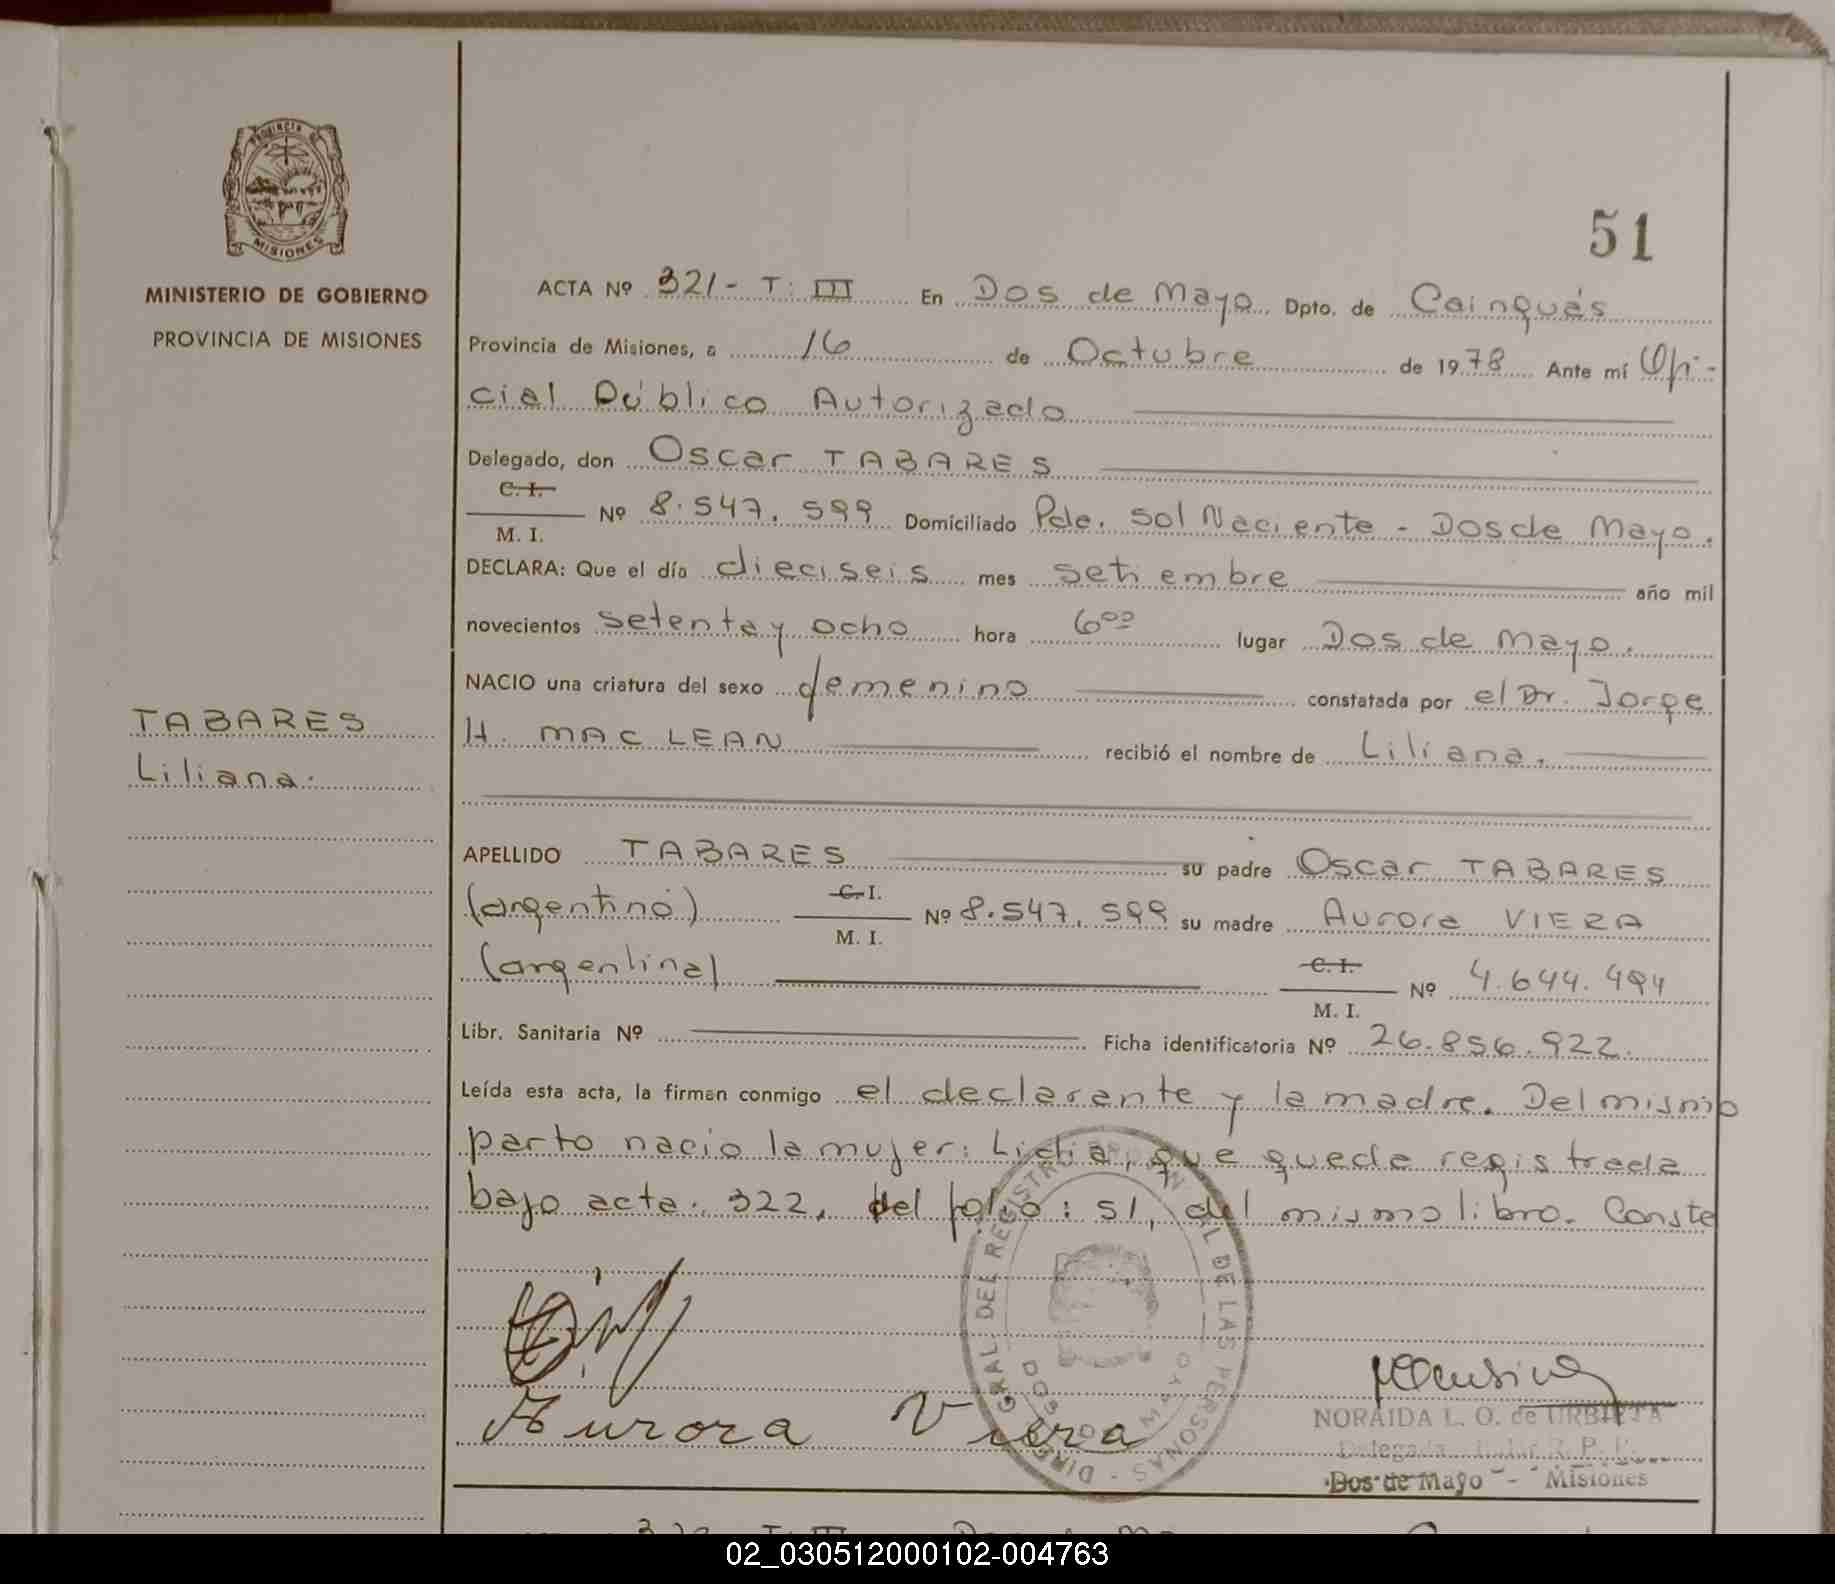 PROVINCIA DE
MISIONES
MINISTERIO DE GOBIERNO
PROVINCIA DE MISIONES
TABARES
Liliana.
51
ACTA Nº 321 - T: III En Dos de Mayo Dpto. de Cainguás
Provincia de Misiones, a 16 de Octubre de 1978 Ante mí Ofi-
cial Público Autorizado
Delegado, don Oscar TABARES
C. I.
M. I. Nº 8.547.599 Domiciliado Pde. Sol Naciente - Dos de Mayo.
DECLARA: Que el día dieciseis mes setiembre año mil
novecientos setenta y ocho hora 6oo lugar Dos de Mayo.
NACIO una criatura del sexo femenino constatada por el Dr. Jorge
H. MAC LEAN recibió el nombre de Liliana.
APELLIDO TABARES su padre Oscar TABARES
(argentino) C. I. M. I. Nº 8.547.599 su madre Aurora VIERA
(argentina) C. I. M. I. Nº 4.644.494
Libr. Sanitaria Nº Ficha identificatoria Nº 26.856.922.
Leída esta acta, la firman conmigo el declarante y la madre. Del mismo
parto nacio la mujer: Lidia, que queda registrada
bajo acta: 322, del folio: 51, del mismo libro. Conste
DIREC. GRAL DEL REGISTRO DE LAS PERSONAS
Aurora Viera
NORAIDA L. O. de URBIETA
Delegada Titular R. P. P.
Dos de Mayo - Misiones
02_030512000102-004763